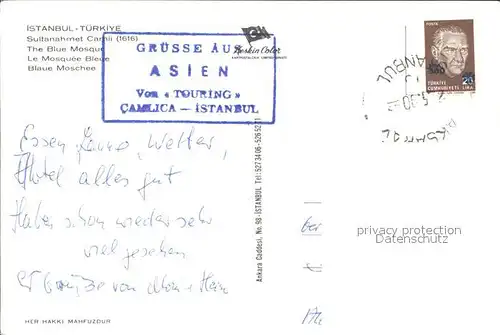 İSTANBUL - TÜRKİYE
Sultanahmet Camii (1616)
The Blue Mosque
Le Mosquée Bleue
Blaue Moschee
GRÜSSE AUS
ASIEN
Von « TOURING »
ÇAMLICA - İSTANBUL
Keskin Color
POSTA
20
TÜRKİYE
CUMHURİYETİ LİRA
Essen, Laune, Wetter,
Hotel alles gut
Haben schon wieder sehr
viel gesehen
Grüße von
Ankara Caddesi, No. 98 - İSTANBUL Tel: 5273406 - 5265271
privacy protection
Datenschutz
HER HAKKI MAHFUZDUR